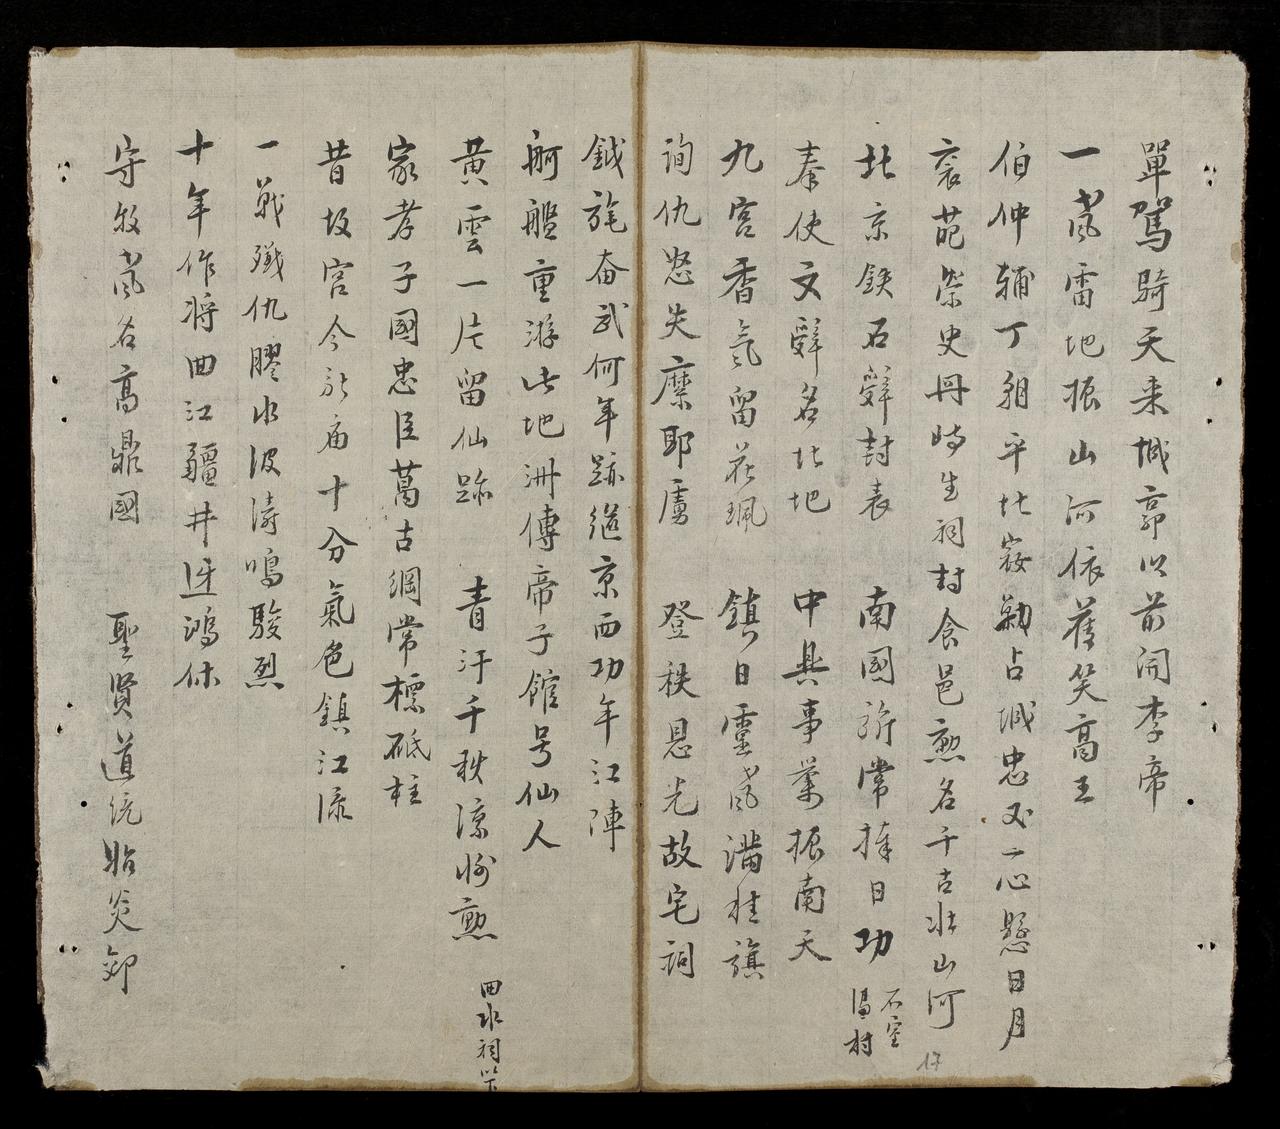 單駕騎天来城郭以前開李帝
一嵗雷地振山河依舊笑高王
伯仲辅丁朝平北寇勅占城忠不二心懸日月
衮葩榮史冊時生祠封食邑勲名千古壮山河
北京鉄石辭封表 南國旂常捧日功 石室馮村
奏使文辭名北地 中興事業振南天
九宮香氣留花珮 鎮日靈風满桂旗
詢仇怒失糜耶虜 登秩恩光故宅祠
鉞旄奋武何年跡繼京西功年江陣
舸艦重游此地洲傳帝子館号仙人
黄雲一片留仙跡 青汗千秋凉州勲 曲水祠以下
家孝子國忠臣萬古綱常標砥柱
昔故宮今形庙十分氣色鎮江流
一戰殲仇膠水波濤鳴駿烈
十年作將曲江疆井迓鴻休
守牧風名高鼎國 聖賢道统貽炎郊
17